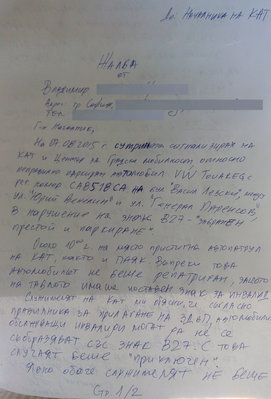 До Началника на КАТ
ЖАЛБА
от
Владимир
Адрес: гр София,
Тел.
Г-н Началник,
На 07.08.2015 г. сутринта сигнализирах на
КАТ и Център за Градска мобилност, относно
неправилно паркиран автомобил VW TOUAREG с
рег номер CA8518CA на бул "Васил Левски", между
ул. "Юрий Венелин" и ул. "Генерал Паренсов"
в нарушение на знак В27 - "Забранен
престой и паркиране".
Около 10 ч. на място пристигна автопатрул
на КАТ, както и ПАЯК. Въпреки това
автомобилът не беше репатриран, защото
на таблото имаше поставен знак за инвалид.
Служителят на КАТ ми обясни, че съгласно
правилника за прилагане на ЗДвП, автомобили
обслужващи инвалиди могат да не се
съобразяват със знак В27. С това
случаят беше "приключен".
Явно обаче служителят не беше
Стр. 1/2